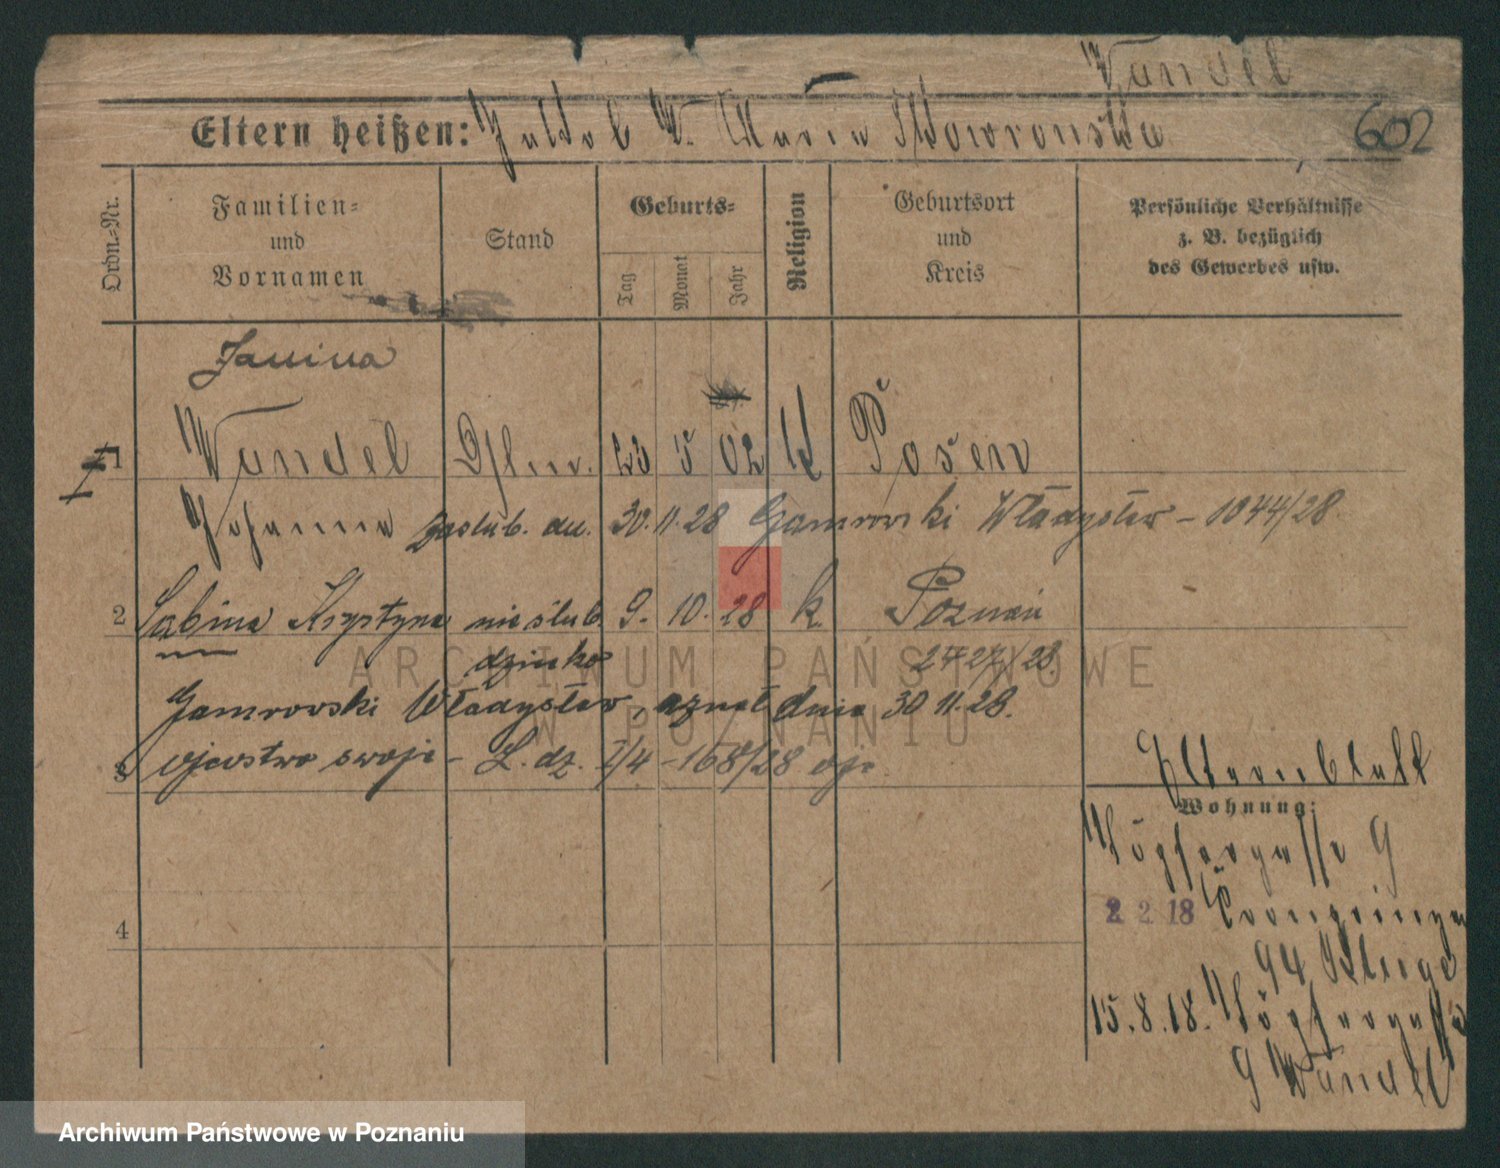 Wandel
Eltern heißen: Jakob W. Maria Skowronska
602
Ordn.-Nr.
Familien-
und
Vornamen
Stand
Geburts-
Tag
Monat
Jahr
Religion
Geburtsort
und
Kreis
Persönliche Verhältnisse
z. B. bezüglich
des Gewerbes usw.
Janina
1 Wandel 23 5 02 k Posen
Johanna zaślub. dn. 30.11.28 Gamrowski Władysław – 1044/28
2 Sabina Krystyna nieślub. 9. 10. 28 k. Poznań
dziecko 2427/28
Gamrowski Władysław, uznał dnia 30 11.28.
3 ojcostwo swoje – L. dz. I/4 – 168/28
Elternblatt
Wohnung:
Töpfergasse 9
2. 2. 18 Kronprinzen
94 Kluge
15.8.18. Töpfergasse
9 Wandel
4
ARCHIWUM PAŃSTWOWE
W POZNANIU
Archiwum Państwowe w Poznaniu